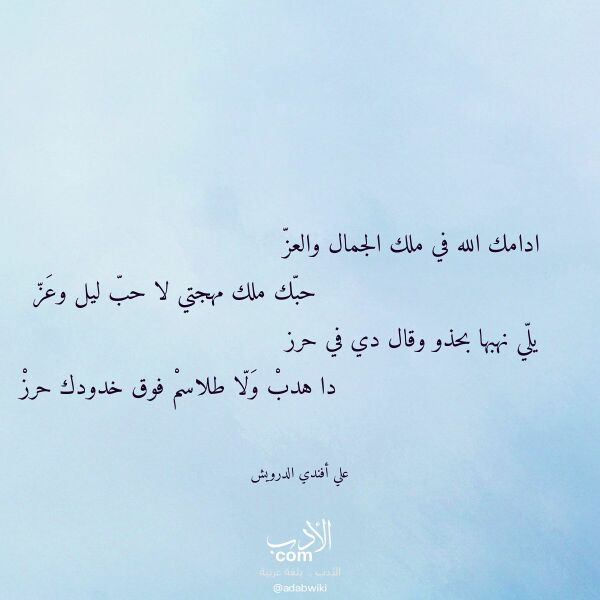 ادامك الله في ملك الجمال والعزّ
حبّك ملك مهجتي لا حبّ ليل وعَزّ
يلّي نهبها بحذو وقال دي في حرز
دا هدبْ وَلّا طلاسمْ فوق خدودك حرزْ
علي أفندي الدرويش
الأدب
com
الأدب .. بلغة عربية
@adabwiki